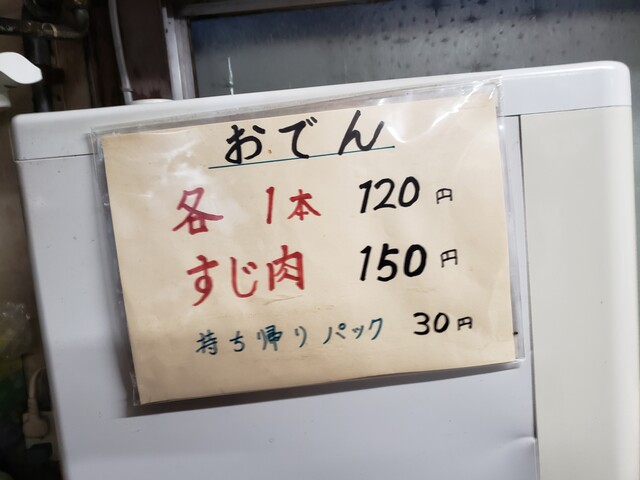 おでん
各 1本 120円
すじ肉 150円
持ち帰りパック 30円